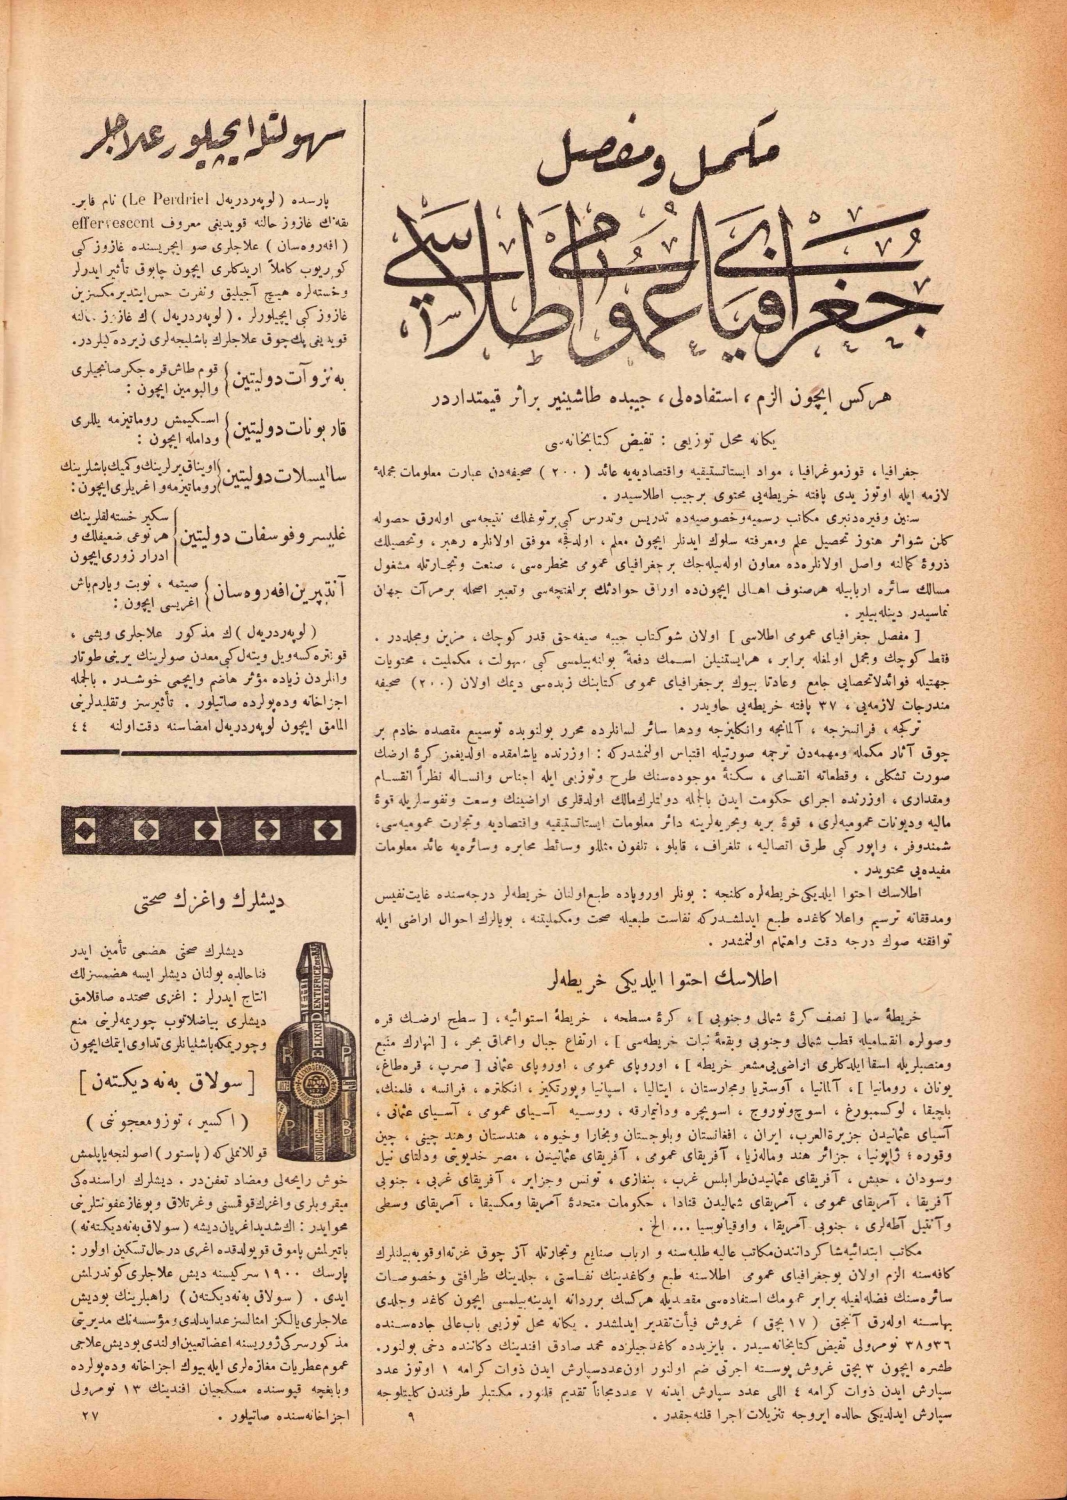 مكمل و مفصل
جغرافیای عمومی اطلاسی
هركس ایچون الزم ، استفاده‌لی ، جیبده طاشینیر براثر قیمتداردر
یكانه محل توزیعی : تفیض كتابخانه‌سی
جغرافیا ، قوزموغرافیا ، مواد ایستاتستیقیه واقتصادیه‌یه عائد ( ٢٠٠ ) صحیفه‌دن عبارت معلومات مجملهٔ
لازمه ایله اوتوز یدی پافته خریطه‌یی محتوی برجیب اطلاسیدر .
سنین وفیره‌دنبری مكاتب رسمیه‌وخصوصیه‌ده تدریس وتدرس كبی‌برتوغلك نتیجه‌سی اوله‌رق حصوله
كلن شواثر هنوز تحصیل علم ومعرفته سلوك ایدنلر ایچون معلم ، اولدقجه موفق اولانلره رهبر ، وتحصیلك
ذروهٔ كمالنه واصل اولانلره‌ده معاون اوله‌بیله‌جك برجغرافیای عمومی مخطره‌سی ، صنعت وتجارتله مشغول
مسالك سائره اربابیله هرصنوف اهالی ایچون‌ده اوراق حوادثك برلغتچه‌سی وتعبیر اصحله برمرآت جهان
نماسیدر دینله‌بیلیر .
[ مفصل جغرافیای عمومی اطلاسی ] اولان شوكتاب جیبه صیغه‌جق قدر كوچك ، مزین ومجلددر .
فقط كوچك ومجمل اولمغله برابر ، هرایستنیلن اسمك دفعةً بولنه‌بیلمسی كبی سهولت ، مكملیت ، محتویات
جهتیله فوائدلاتحصایی جامع وعادتا بیوك برجغرافیای عمومی كتابنك زبده‌سی دیمك اولان (٢٠٠) صحیفه
مندرجات لازمه‌یی ، ٣٧ پافته خریطه‌یی حاویدر .
تركجه ، فرانسزجه ، آلمانجه وانكلیزجه ودها سائر لسانلرده محرر بولنوبده توسیع مقصده خادم بر
چوق آثار مكمله ومهمه‌دن ترجمه صورتیله اقتباس اولنمشدركه : اوزرنده یاشامقده اولدیغمز كرهٔ ارضك
صورت تشكلی ، وقطعاته انقسامی ، سكنهٔ موجوده‌سنك طرح وتوزیعی ایله اجناس وانساله نظراً انقسام
ومقداری ، اوزرنده اجرای حكومت ایدن بالجمله دولتلرك‌مالك اولدقلری اراضینك وسعت ونفوسلریله قوهٔ
مالیه ودیونات عمومیه‌لری ، قوهٔ بریه وبحریه‌لرینه دائر معلومات ایستاتستیقیه واقتصادیه وتجارت عمومیه‌سی،
شمندوفر ، واپور كبی طرق اتصالیه ، تلغراف ، قابلو ، تلفون مثللو وسائط مخابره وسائره‌یه عائد معلومات
مفیده‌یی محتویدر .
اطلاسك احتوا ایلدیكی‌خریطه‌لره كلنجه : بونلر اوروپاده طبع‌اولنان خریطه‌لر درجه‌سنده غایت‌نفیس
ومدققانه ترسیم واعلا كاغده طبع ایدلمشدركه نفاست طبعیله صحت ومكملیتنه ، بویالرك احوال اراضی ایله
توافقنه صوك درجه دقت واهتمام اولنمشدر .
اطلاسك احتوا ایلدیكی خریطه‌لر
خریطهٔ سما [ نصف كرهٔ شمالی وجنوبی ] ، كرهٔ مسطحه ، خریطهٔ استوائیه ، [ سطح ارضك قره
وصولره انقسامیله قطب شمالی وجنوبی وبقعهٔ نبات خریطه‌سی ] ، ارتفاع جبال واعماق بحر ، [ انهارك منبع
ومنصبلریله اسقا ایلدكلری اراضی‌یی‌مشعر خریطه ] ، اوروپای عمومی ، اوروپای عثمانی [ صرب ، قره‌طاغ،
یونان ، رومانیا ] ، آلمانیا ، آوستریا ومجارستان ، ایتالیا ، اسپانیا وپورتكیز ، انكلتره ، فرانسه ، فلمنك،
بلچیقا ، لوكسمبورغ ، اسوچ‌ونوروج ، اسویچره ودانیمارقه ، روسیه آسیای عمومی ، آسیای عثمانی ،
آسیای عثمانیدن جزیرةالعرب، ایران ، افغانستان وبلوجستان وبخارا وخیوه ، هندستان وهند چینی ، چین
وقوره ؛ ژاپونیا ، جزائر هند وماله‌زیا ، آفریقای عمومی ، آفریقای عثمانیدن ، مصر خدیویتی ودلتای نیل
وسودان ، حبش ، آفریقای عثمانیدن‌طرابلس غرب ، بنغازی ، تونس وجزایر ، آفریقای غربی ، جنوبی
آفریقا ، آمریقای عمومی ، آمریقای شمالیدن قنادا ، حكومات متحدهٔ آمریقا ومكسیقا ، آمریقای وسطی
وآنتیل آطه‌لری ، جنوبی آمریقا ، واوقیانوسیا .... الخ .
مكاتب ابتدائیه‌شاكرداننندن‌مكاتب عالیه طلبه‌سنه و ارباب صنایع وتجارتله آز چوق غزته‌اوقویه‌بیلنلرك
كافه‌سنه الزم اولان بوجغرافیای عمومی اطلاسنه طبع وكاغدینك نفاستی ، جلدینك ظرافتی وخصوصات
سائره‌سنك فضله‌لغیله برابر عمومك استفاده‌سی مقصدیله هركسك بردانه ایدینه‌بیلمسی ایچون كاغد وجلدی
بهاسنه اوله‌رق آنجق ( ١٧ بچق ) غروش فیأت‌تقدیر ایدلمشدر . یكانه محل توزیعی باب‌عالی جاده‌سنده
٣٦و٣٨ نومرولی تفیض كتابخانه‌سیدر . بایزیدده كاغدجیلرده محمد صادق افندینك دكاننده دخی بولنور.
طشره ایچون ٣ بچق غروش پوسته اجرتی ضم اولنور اون‌عددسپارش ایدن ذوات كرامه ١ اوتوز عدد
سپارش ایدن ذوات كرامه ٤ اللی عدد سپارش ایدنه ٧ عددمجاناً تقدیم قلنور. مكتبلر طرفندن كلیتلوجه
سپارش ایدلدیكی حالده ایروجه تنزیلات اجرا قلنه‌جقدر .
٩
سهولتله ایچیلور علاجلر
پارسده (لوپه‌ردریه‌ل Le Perdriel) نام فابر-
یقه‌نك غازوز حالنه قویدیغی معروف effervescent
( افه‌روه‌سان ) علاجلری صو ایچریسنده غازوز كبی
كوپریوب كاملاً اریدكلری ایچون چابوق تأثیر ایدرلر
وخسته‌لره هیچ آجیلیق ونفرت حس‌ایتدیرمكسزین
غازوز كبی ایچیلورلر . ( لوپه‌ردریه‌ل ) ك غازوز حالنه
قویدیغی پك‌چوق علاجلرك باشلیجه‌لری زیرده‌كیلردر.
به‌نزوآت‌دولیتین { قوم طاش‌قره جكرصانجیلری
والبومین ایچون :
قاربونات‌دولیتین { اسكیمش روماتیزمه یللری
ودامله ایچون :
سالیسلات‌دولیتین { اویناق‌یرلرینك‌وكمیك‌باشلرینك
روماتیزمه‌واغریلری‌ایچون :
غلیسروفوسفات دولیتین { سكیر خسته‌لقلرینك
هرنوعی ضعیفلك و
ادرار زوری‌ایچون
آنتیپرین‌افه‌روه‌سان { صیتمه ، نوبت ویارم‌باش
اغریسی ایچون :
( لوپه‌ردریه‌ل ) ك مذكور علاجلری ویشی ،
قونتره‌كسه‌ویل ویته‌ل كبی‌معدن صولرینك یرینی طوتار
وانلردن زیاده مؤثر هاضم وایچمی خوشدر . بالجمله
اجزاخانه وده‌پولرده صاتیلور . تأثیرسز وتقلیدلرینی
المامق ایچون لوپه‌ردریه‌ل امضاسنه دقت‌اولنه ٤٤
دیشلرك واغزك صحتی
دیشلرك صحتی هضمی تأمین ایدر
فناحالده بولنان دیشلر ایسه هضمسزلك
انتاج ایدرلر : اغزی صحتده صاقلامق
دیشلری بیاضلاتوب چوریمه‌لرینی منع
وچوریمكه‌باشلیانلری‌تداوی‌ایتمك‌ایچون
[ سولاق به‌نه‌دیكتن ]
( اكسیر ، توزومعجوننی )
قوللانملی‌كه ( پاستور ) اصولنجه‌یاپلمش
خوش رایحه‌لی ومضاد تعفن‌در . دیشلرك اراسنده‌كی
میقروبلری واغزك‌قوقسنی وغرتلاق وبوغازعفونتلرینی
محوایدر : اك‌شدیداغریان‌دیشه ( سولاق به‌نه‌دیكته‌نه )
باتیرلمش پاموق قویولدقده اغری درحال‌تسكین اولور :
پارسك ١٩٠٠ سركیسنه دیش علاجلری‌كوندرلمش
ایدی . ( سولاق به‌نه‌دیكته‌ن ) راهبلرینك بودیش
علاجلری‌یالكز امثالسزعدایدلدی‌ومؤسسه‌نك مدیرینی
مذكورسركی‌ژوریسنه اعضاتعیین‌اولندی‌بودیش‌علاجی
عموم‌عطریات مغازه‌لری ایله‌بیوك اجزاخانه وده‌پولرده
وباغچه قپوسنده مسكجیان افندینك ١٣ نومرولی
اجزاخانه‌سنده صاتیلور . ٢٧